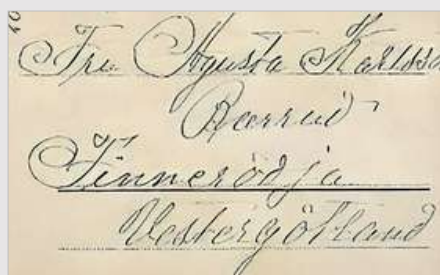 Fru Agusta Karlsso
Barrud
Finnerödja
Vestergötland